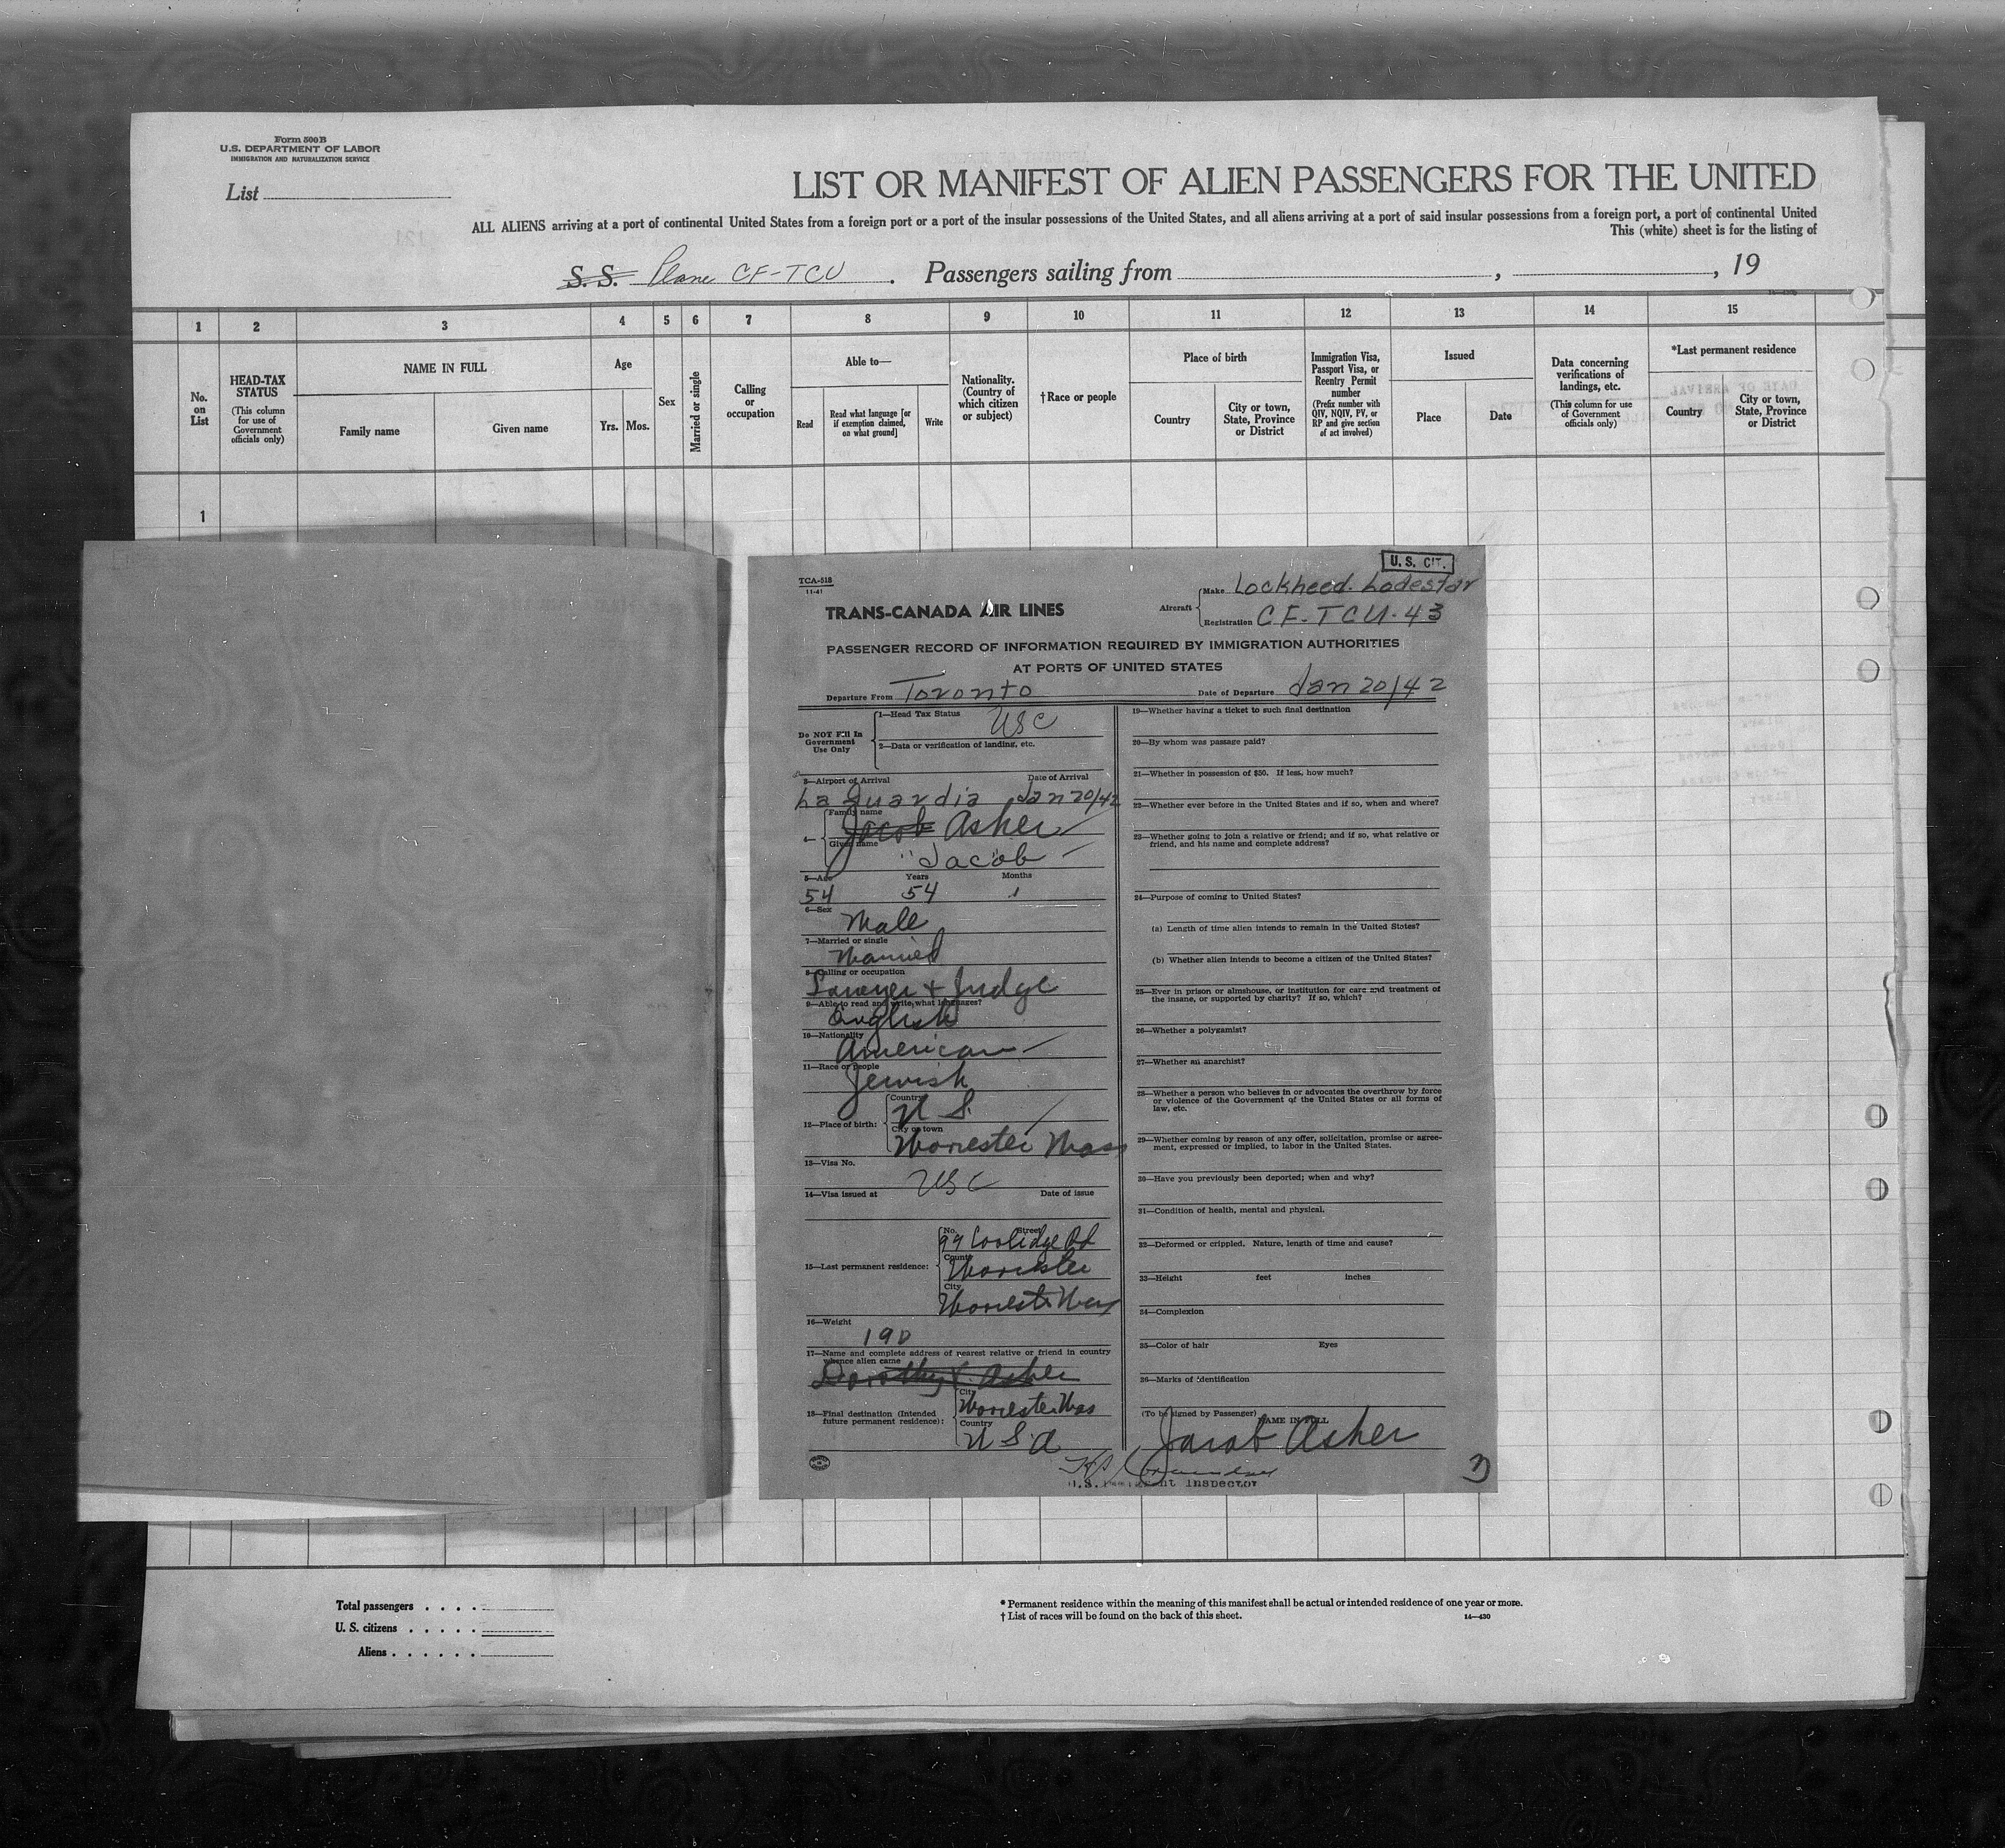 Form 500 B
U.S. DEPARTMENT OF LABOR
IMMIGRATION AND NATURALIZATION SERVICE
List
LIST OR MANIFEST OF ALIEN PASSENGERS FOR THE UNITED
ALL ALIENS arriving at a port of continental United States from a foreign port or a port of the insular possessions of the United States, and all aliens arriving at a port of said insular possessions from a foreign port, a port of continental United
This (white) sheet is for the listing of
S.S. Plane CF-TCU. Passengers sailing from , , 19
1 2 3 4 5 6 7 8 9 10 11 12 13 14 15
No. on List
HEAD-TAX STATUS
(This column for use of Government officials only)
NAME IN FULL
Family name
Given name
Age
Yrs. Mos.
Sex
Married or single
Calling or occupation
Able to—
Read
Read what language [or if exemption claimed, on what ground]
Write
Nationality. (Country of which citizen or subject)
†Race or people
Place of birth
Country
City or town, State, Province or District
Immigration Visa, Passport Visa, or Reentry Permit number
(Prefix number with QIV, NQIV, PV, or RP and give section of act involved)
Issued
Place
Date
Data concerning verifications of landings, etc.
(This column for use of Government officials only)
*Last permanent residence
Country
City or town, State, Province or District
1
U. S. CIT.
TCA-518
11-41
TRANS-CANADA AIR LINES
Aircraft
Make Lockheed Lodestar
Registration CF-TCU-43
PASSENGER RECORD OF INFORMATION REQUIRED BY IMMIGRATION AUTHORITIES
AT PORTS OF UNITED STATES
Departure From Toronto Date of Departure Jan 20/42
Do NOT Fill In Government Use Only
1—Head Tax Status USC
2—Data or verification of landing, etc.
3—Airport of Arrival Date of Arrival
La Guardia Jan 20/42
4—
Family name
Jacob Asher
Given name
"Jacob"
5—Age Years Months
54 54 1
6—Sex
Male
7—Married or single
Married
8—Calling or occupation
Lawyer + Judge
9—Able to read and write, what languages?
English
10—Nationality
American
11—Race or people
Jewish
12—Place of birth:
Country
U S.
City or town
Worcester Mass
13—Visa No.
USC
14—Visa issued at Date of issue
15—Last permanent residence:
No. Street
99 Coolidge Rd
County
Worcester
City
Worcester Mass
16—Weight
190
17—Name and complete address of nearest relative or friend in country whence alien came
Dorothy Asher
18—Final destination (Intended future permanent residence):
City
Worcester Mas
Country
U S A
19—Whether having a ticket to such final destination
20—By whom was passage paid?
21—Whether in possession of $50. If less, how much?
22—Whether ever before in the United States and if so, when and where?
23—Whether going to join a relative or friend; and if so, what relative or
friend, and his name and complete address?
24—Purpose of coming to United States?
(a) Length of time alien intends to remain in the United States?
(b) Whether alien intends to become a citizen of the United States?
25—Ever in prison or almshouse, or institution for care and treatment of
the insane, or supported by charity? If so, which?
26—Whether a polygamist?
27—Whether an anarchist?
28—Whether a person who believes in or advocates the overthrow by force
or violence of the Government of the United States or all forms of
law, etc.
29—Whether coming by reason of any offer, solicitation, promise or agree-
ment, expressed or implied, to labor in the United States.
30—Have you previously been deported; when and why?
31—Condition of health, mental and physical.
32—Deformed or crippled. Nature, length of time and cause?
33—Height feet inches
34—Complexion
35—Color of hair Eyes
36—Marks of identification
(To be signed by Passenger) NAME IN FULL
Jacob Asher
U.S. Inspector
3
Total passengers . . . .
U. S. citizens . . . . .
Aliens . . . . . .
* Permanent residence within the meaning of this manifest shall be actual or intended residence of one year or more.
† List of races will be found on the back of this sheet. 14—430